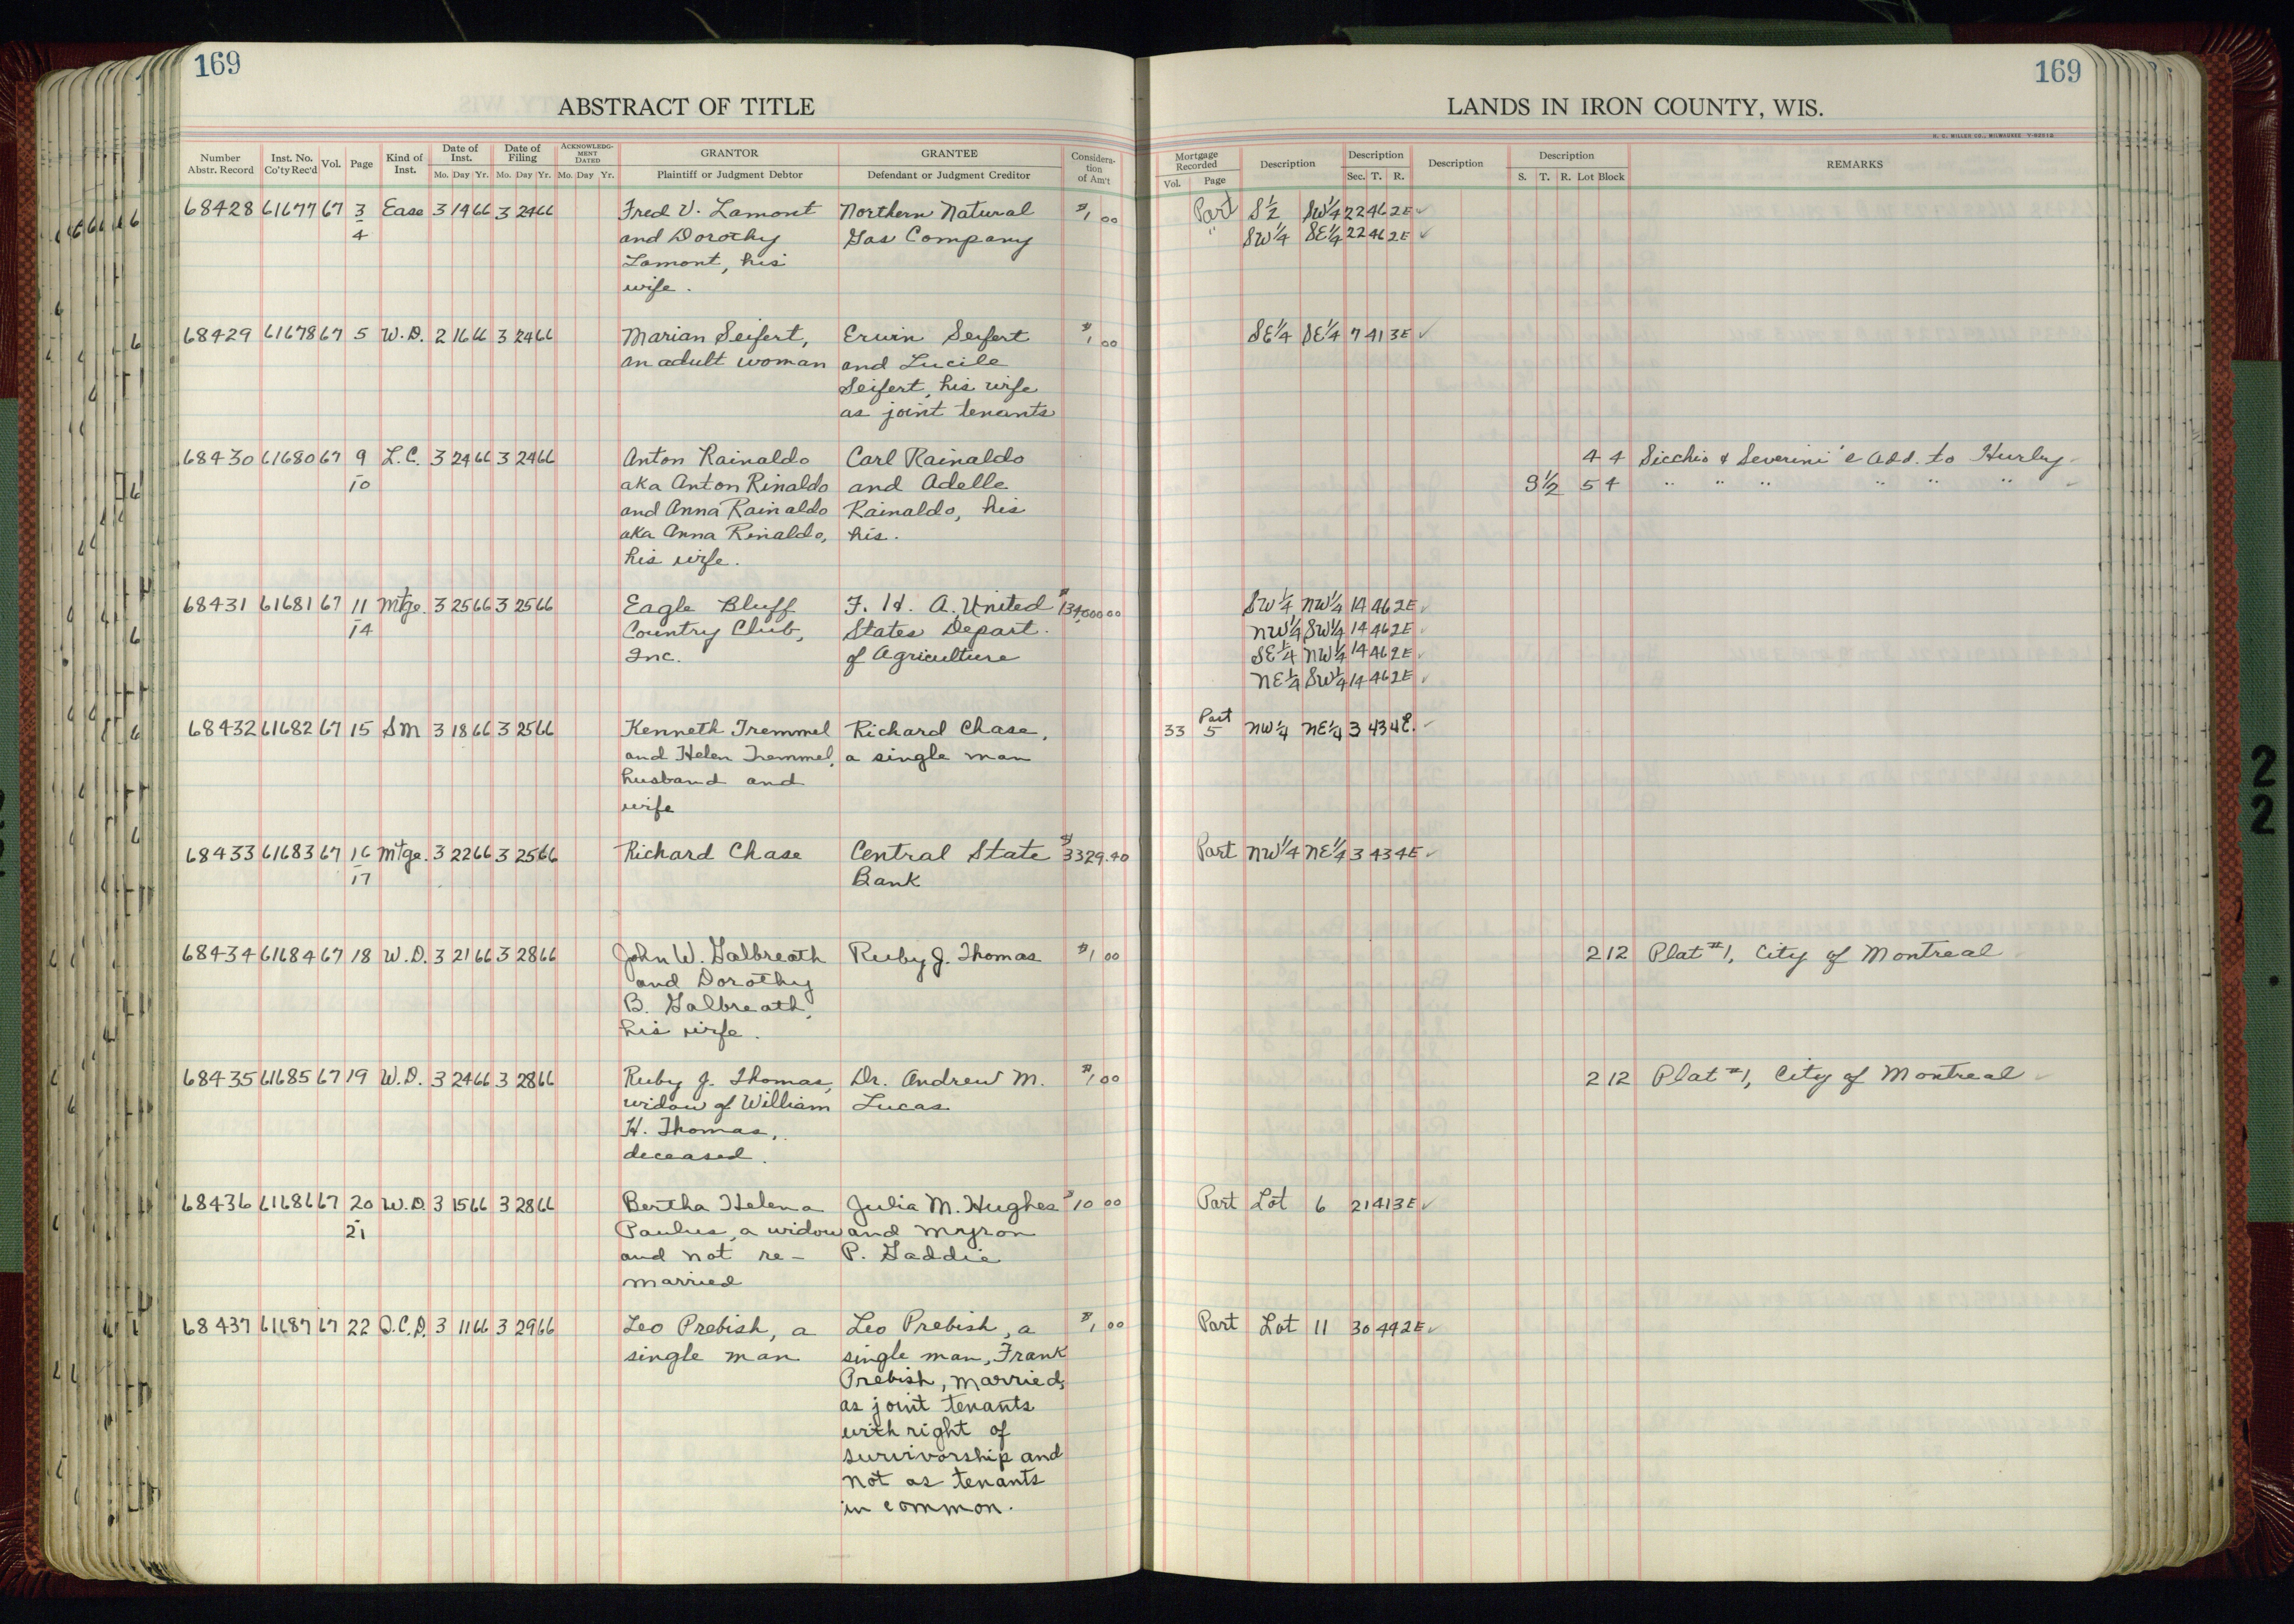 169
169
ABSTRACT OF TITLE
LANDS IN IRON COUNTY, WIS.
Number Abstr. Record Inst. No. Co'ty Rec'd Vol. Page Kind of Inst. Date of Inst. Mo. Day Yr. Date of Filing Mo. Day Yr. ACKNOWLEDGMENT DATED Mo. Day Yr. GRANTOR Plaintiff or Judgment Debtor GRANTEE Defendant or Judgment Creditor Consideration of Am't
Mortgage Recorded Vol. Page Description Description Sec. T. R. Description Description S. T. R. Lot Block REMARKS
68428 61677 67 3 Ease 3 14 66 3 24 66 Fred V. Lamont Northern Natural $1 00 Part S½ SW¼ 22 46 2E ✓
4 and Dorothy Gas Company " SW¼ SE¼ 22 46 2E ✓
Lamont, his
wife.
68429 61678 67 5 W.D. 2 16 66 3 24 66 Marian Seifert, Erwin Seifert $1 00 SE¼ SE¼ 7 41 3E ✓
an adult woman and Lucile
Seifert, his wife
as joint tenants
68430 61680 67 9 L.C. 3 24 66 3 24 66 Anton Rainaldo Carl Rainaldo 4 4 Sicchio & Severini's Add. to Hurley
10 aka Anton Rinaldo and Adelle S½ 5 4 " " " " " "
and Anna Rainaldo Rainaldo, his
aka Anna Rinaldo, his.
his wife.
68431 61681 67 11 Mtge. 3 25 66 3 25 66 Eagle Bluff F. H. A. United $134,000 00 SW¼ NW¼ 14 46 2E ✓
14 Country Club, States Depart. NW¼ SW¼ 14 46 2E ✓
Inc. of Agriculture SE¼ NW¼ 14 46 2E ✓
NE¼ SW¼ 14 46 2E ✓
68432 61682 67 15 SM 3 18 66 3 25 66 Kenneth Tremmel Richard Chase, 33 Part 5 NW¼ NE¼ 3 43 4E. ✓
and Helen Tremmel, a single man
husband and
wife
68433 61683 67 16 Mtge. 3 22 66 3 25 66 Richard Chase Central State $3329.40 Part NW¼ NE¼ 3 43 4E ✓
17 Bank
68434 61684 67 18 W.D. 3 21 66 3 28 66 John W. Galbreath Ruby J. Thomas $1 00 2 12 Plat #1, City of Montreal
and Dorothy
B. Galbreath,
his wife.
68435 61685 67 19 W.D. 3 24 66 3 28 66 Ruby J. Thomas, Dr. Andrew M. $1 00 2 12 Plat #1, City of Montreal
widow of William Lucas
H. Thomas,
deceased.
68436 61686 67 20 W.D. 3 15 66 3 28 66 Bertha Helena Julia M. Hughes $10 00 Part Lot 6 21 41 3E ✓
21 Paulus, a widow and Myron
and not re- P. Gaddie
married
68437 61687 67 22 Q.C.D. 3 11 66 3 29 66 Leo Prebish, a Leo Prebish, a $1 00 Part Lot 11 30 44 2E ✓
single man single man, Frank
Prebish, married,
as joint tenants
with right of
survivorship and
not as tenants
in common.
2
2